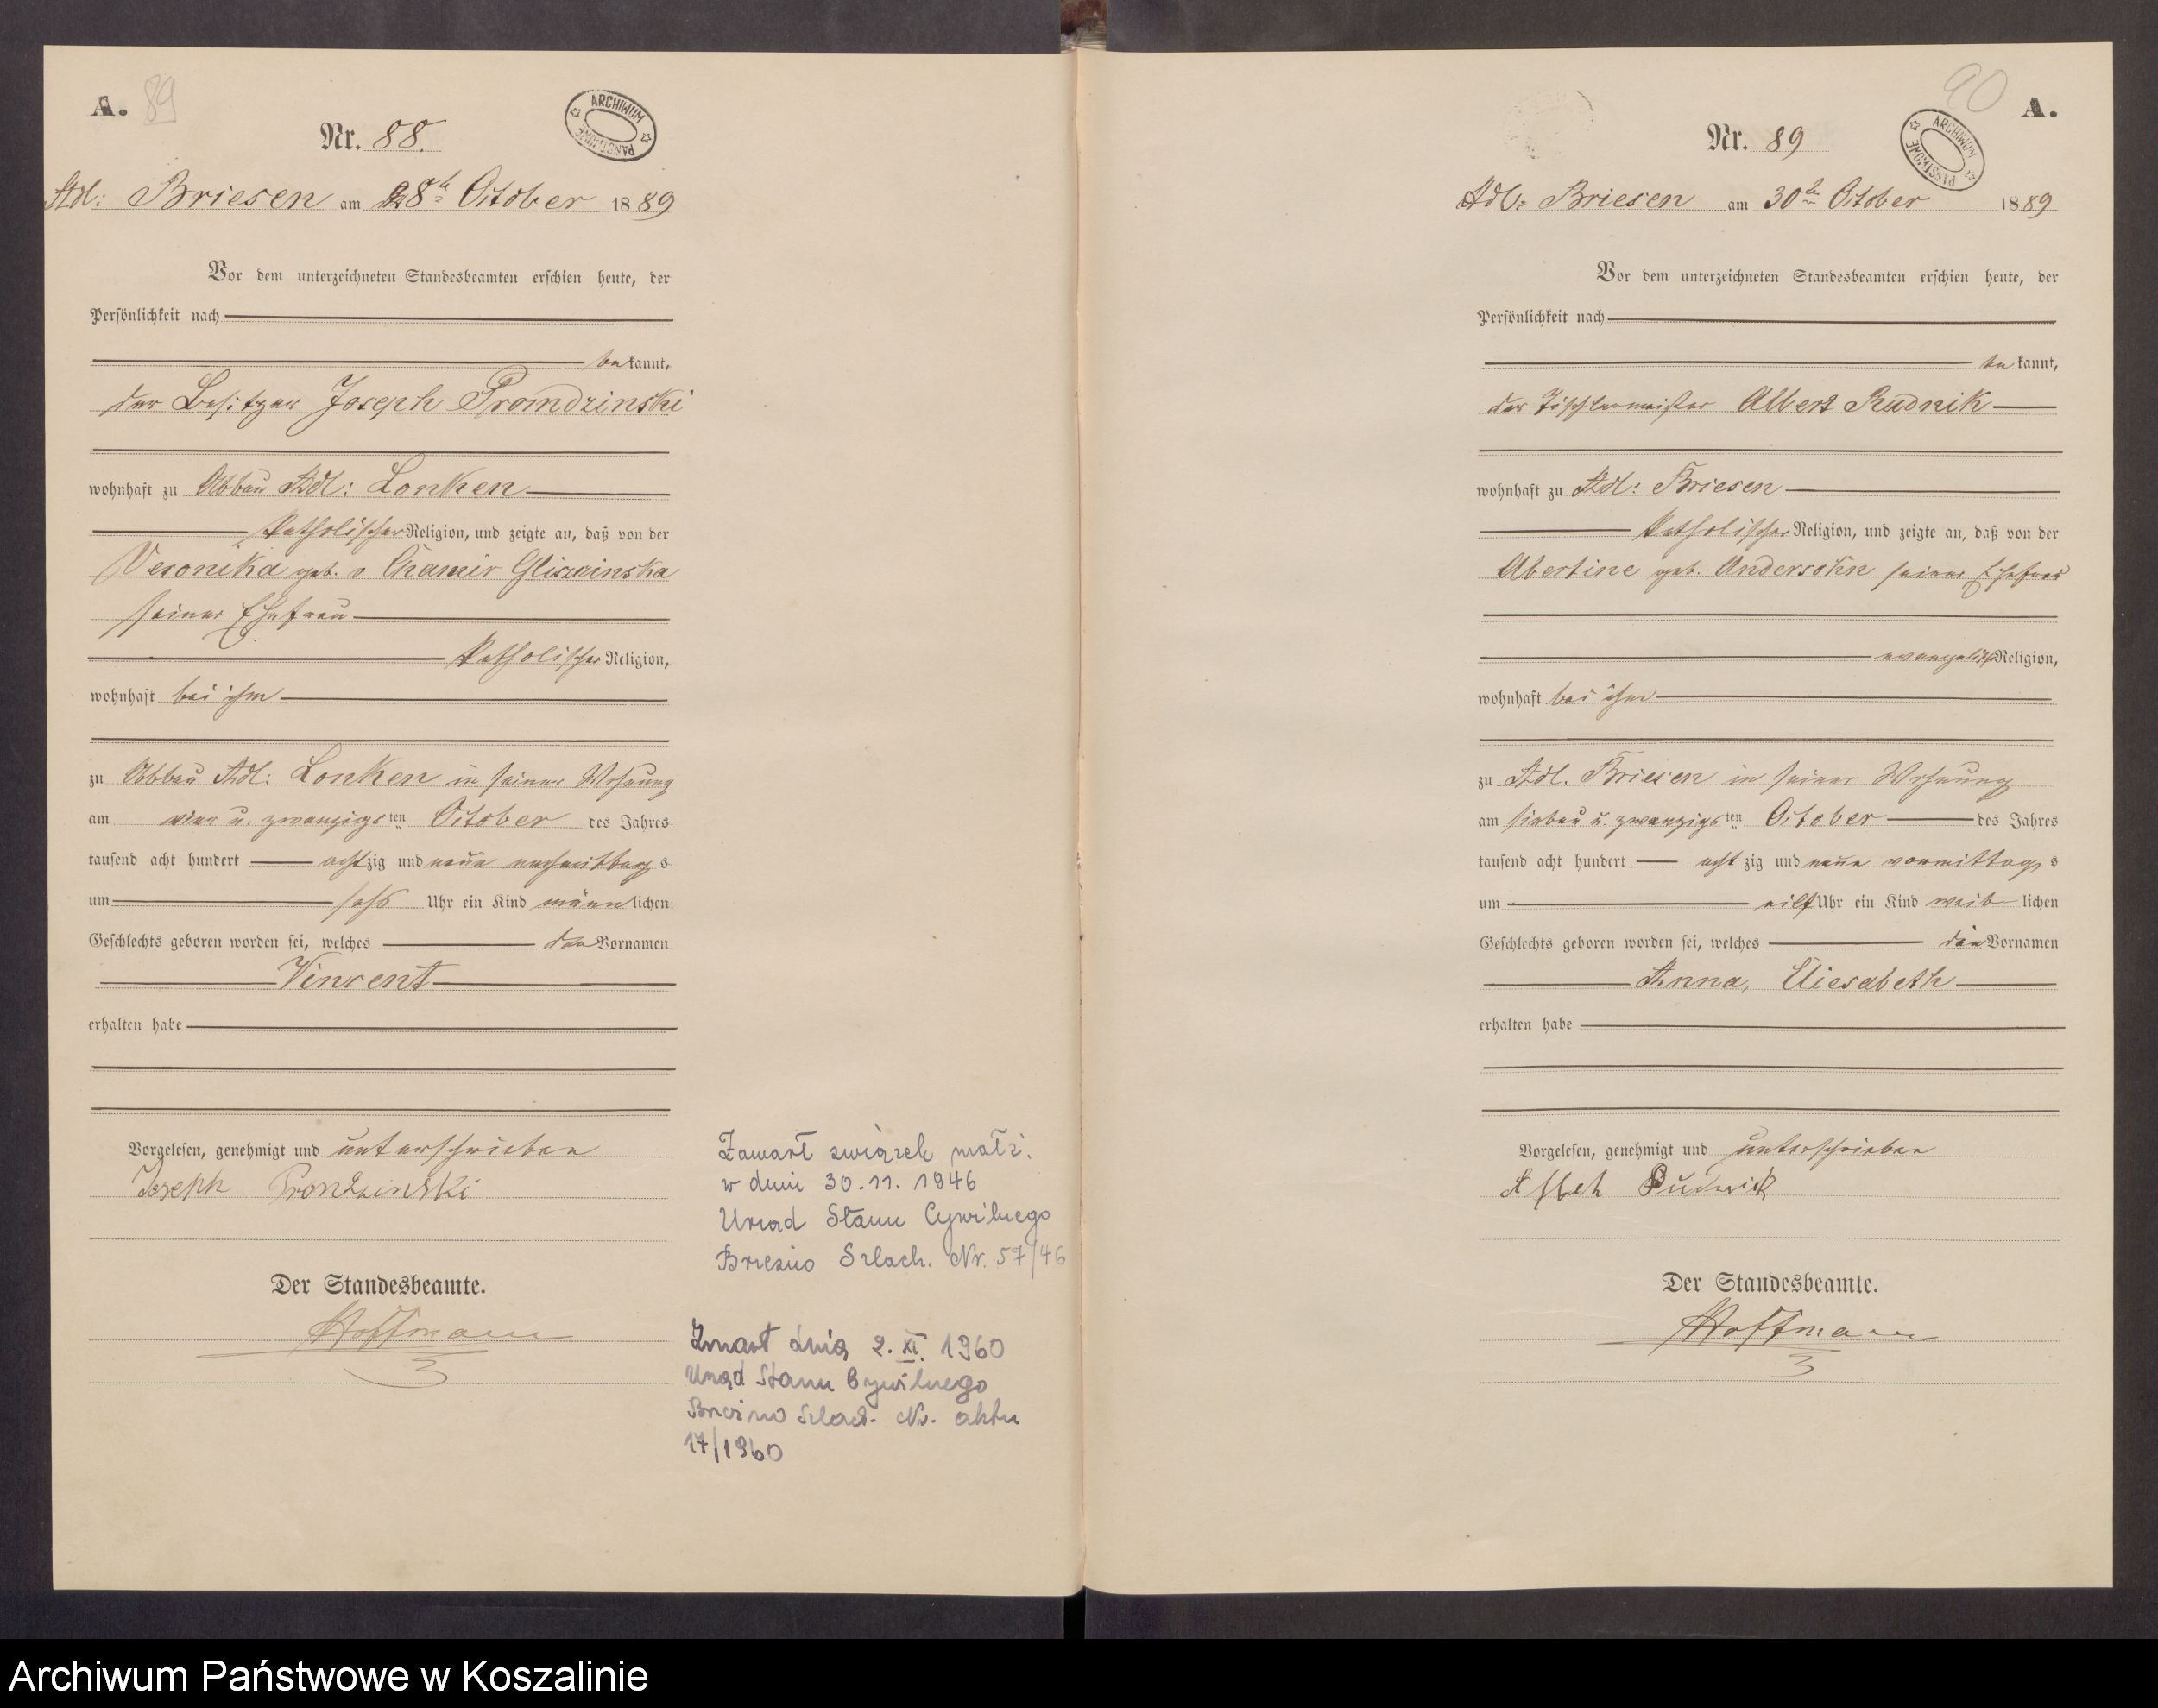 A. 89
ARCHIWUM PAŃSTWOWE
Nr. 88.
Adl: Briesen am 28t October 1889
Vor dem unterzeichneten Standesbeamten erschien heute, der
Persönlichkeit nach
bekannt,
der Besitzer Joseph Promdzinski
wohnhaft zu Abbau Adl: Lonken
katholischer Religion, und zeigte an, daß von der
Veronika geb. v Chamir Gliszcinska
seiner Ehefrau
katholischer Religion,
wohnhaft bei ihm
zu Abbau Adl: Lonken in seiner Wohnung
am vier u. zwanzigsten October des Jahres
tausend acht hundert achtzig und neun nachmittags
um sechs Uhr ein Kind männlichen
Geschlechts geboren worden sei, welches den Vornamen
Vincent
erhalten habe
Vorgelesen, genehmigt und unterschrieben
Joseph Prondzinski
Der Standesbeamte.
Hoffmann
Zawarł związek małż.
w dniu 30.11.1946
Urząd Stanu Cywilnego
Brzeźno Szlach. Nr. 57/46
Zmarł dnia 2. XI. 1960
Urząd Stanu Cywilnego
Brzeźno Szlach. Nr. aktu
17/1960
90 A.
ARCHIWUM PAŃSTWOWE
Nr. 89
Adl: Briesen am 30t October 1889
Vor dem unterzeichneten Standesbeamten erschien heute, der
Persönlichkeit nach
bekannt,
der Tischlermeister Albert Rudnik
wohnhaft zu Adl: Briesen
katholischer Religion, und zeigte an, daß von der
Albertine geb. Andersohn seiner Ehefrau
evangelischer Religion,
wohnhaft bei ihm
zu Adl. Briesen in seiner Wohnung
am sieben u. zwanzigsten October des Jahres
tausend acht hundert achtzig und neun vormittags
um eilf Uhr ein Kind weiblichen
Geschlechts geboren worden sei, welches die Vornamen
Anna, Eliesabeth
erhalten habe
Vorgelesen, genehmigt und unterschrieben
Rudnick
Der Standesbeamte.
Hoffmann
Archiwum Państwowe w Koszalinie